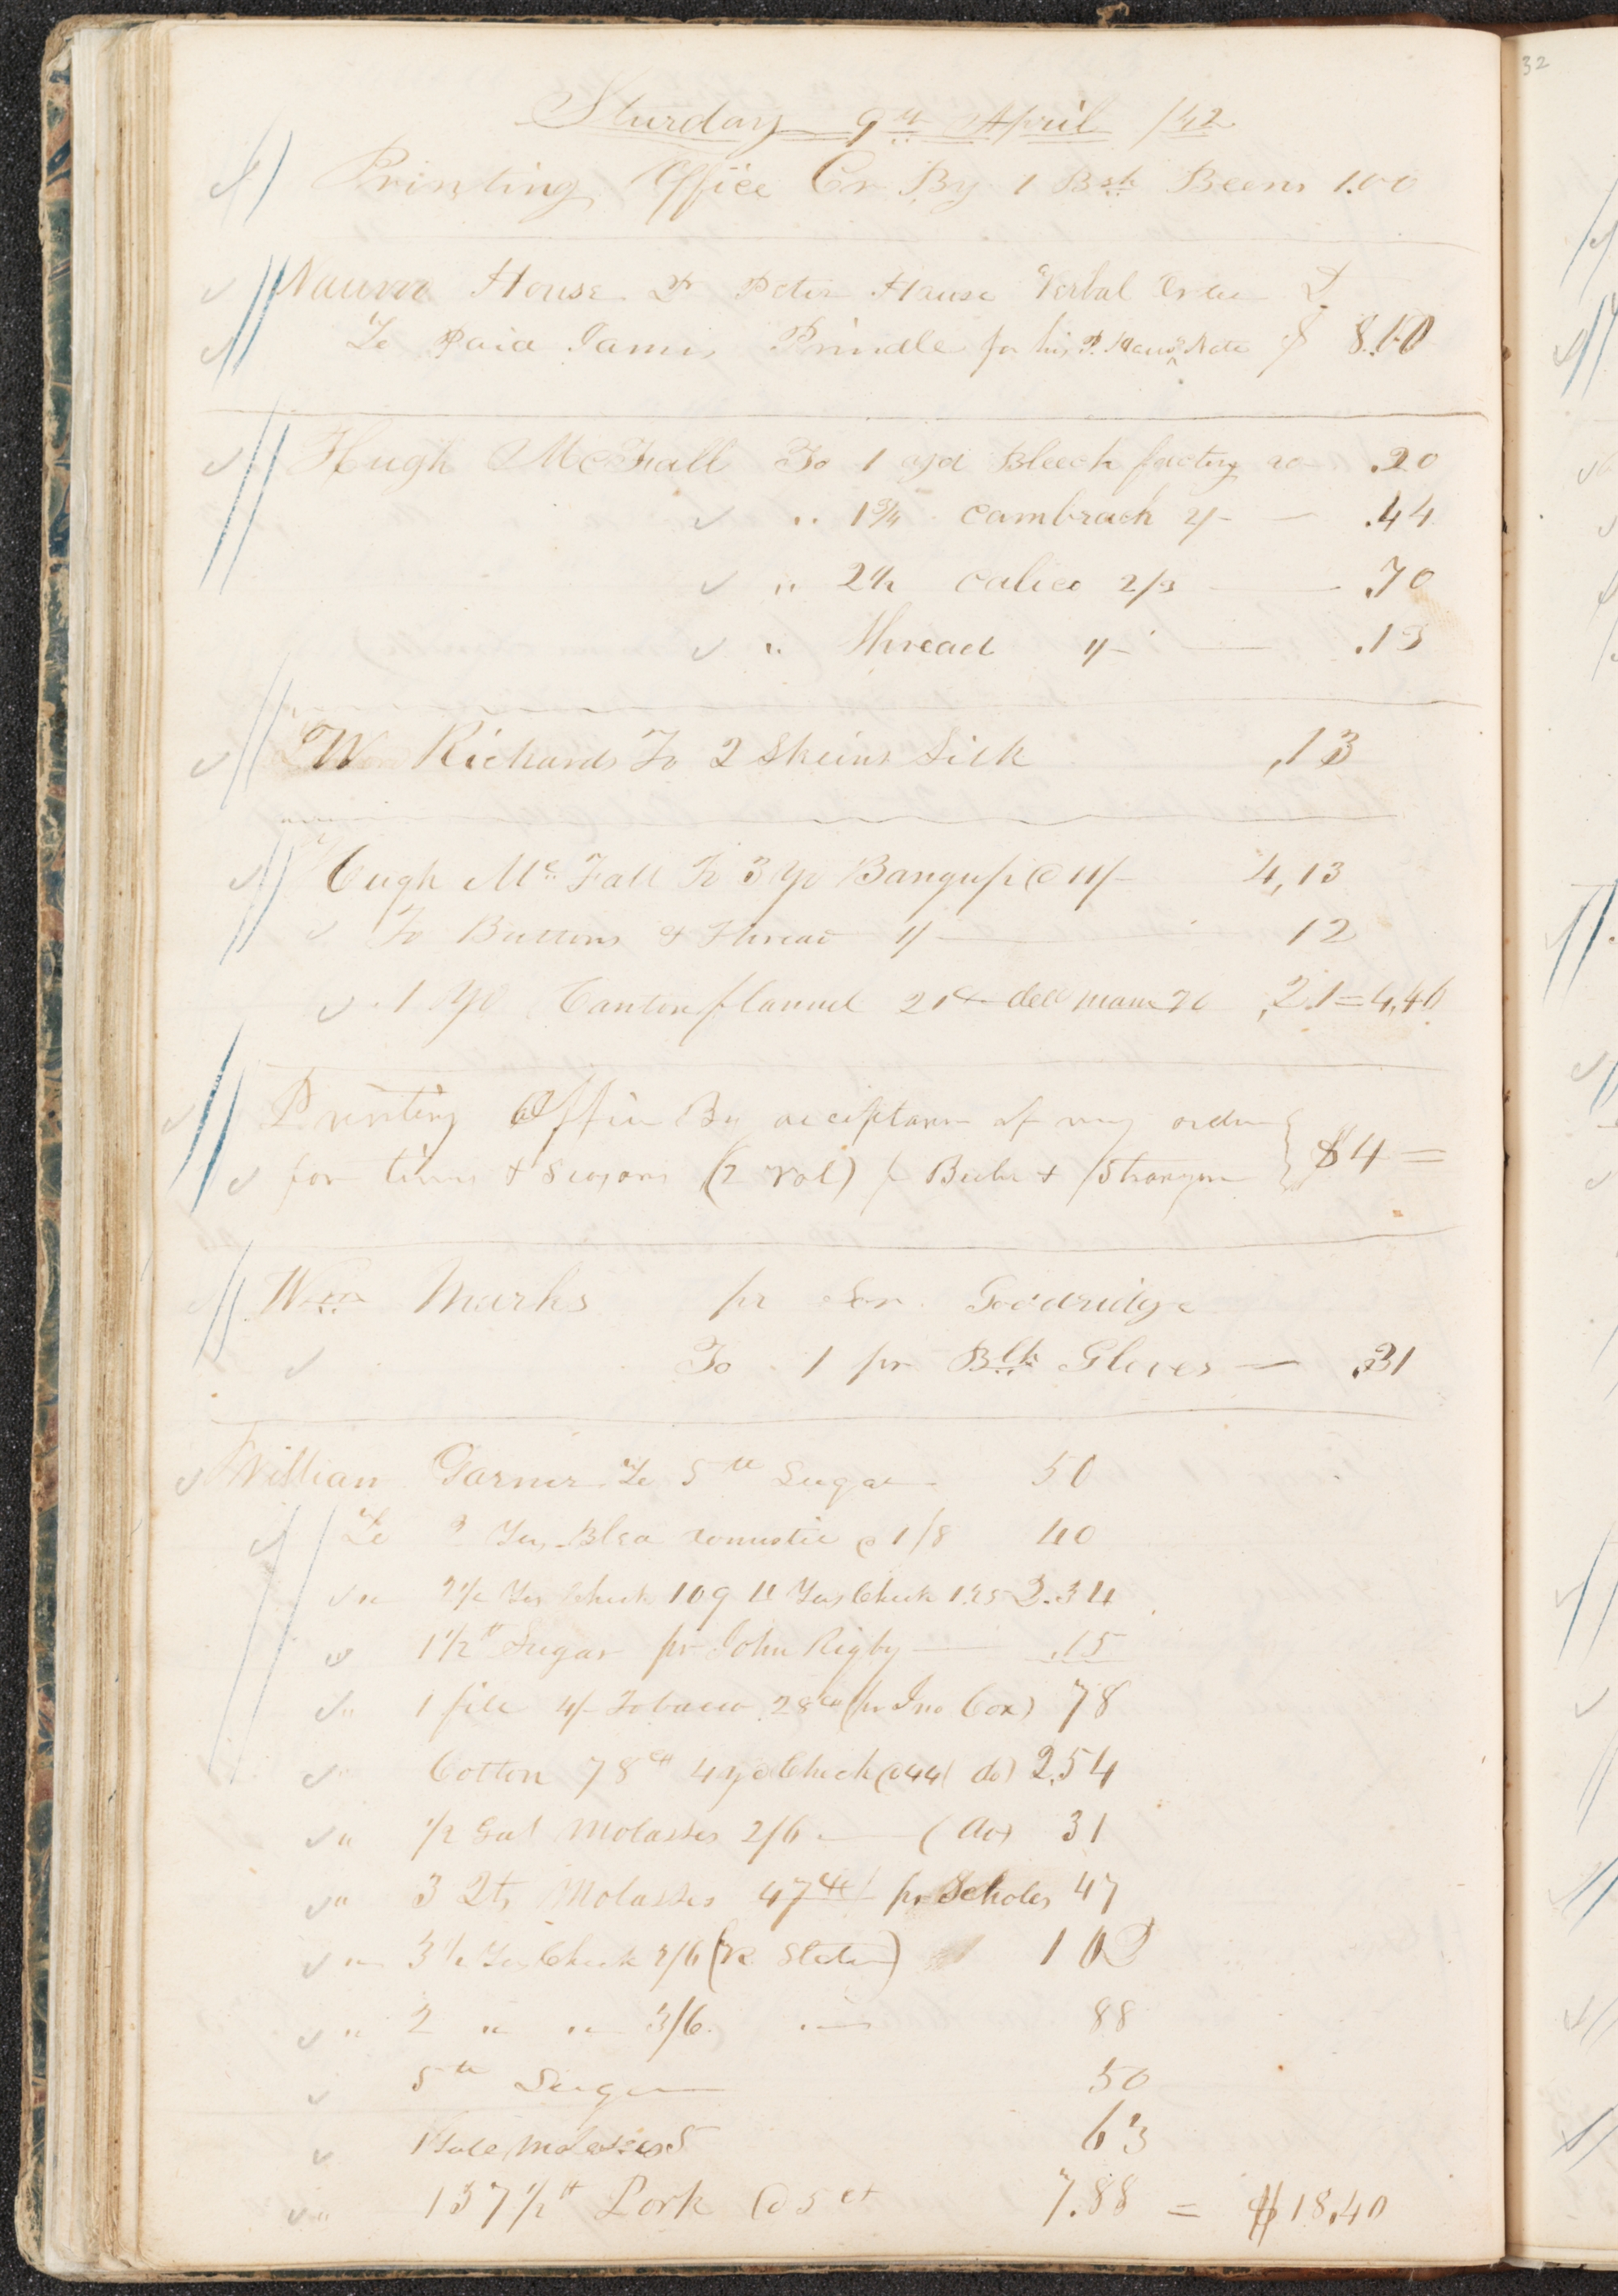 Sturday 9th April /42
Printing Office Cr By 1 Bsh Beens 1.00
House Dr Peter House Verbal Order
To Paid James Prindle for his P. House Note $ 8.10
Hugh McFall To 1 yd Bleech factory 20 .20
" 1 3/4 cambrack 2/- — .44
" 2 1/2 calico 2/3 — .70
" thread 1/- — .13
Wm Richards To 2 Skeins Silk ,13
Hugh Mc Fall To 3 yd Bangup @ 11/- 4,13
To Buttons & Thread 1/- — 12
1 yd Canton flannel 21ct 21=4,46
Printing Office By acceptance of my order
for times & Seasons (2 Vol) $4=
Wm Marks pr Son Goodridge
To 1 pr Blk Gloves — .31
William Garner To 5 lb Sugar 50
To 2 Yds Blea Domestic @ 1/8 40
" 2 1/2 Yds Check 109 4 Yds Check 1.25 2.34
" 1 1/2 lb Sugar pr John Rigby — .15
" 1 file 4/- Tobacco 28ct (pr Jno Cox) 78
" Cotton 78ct 4 yd Check (@44 do) 2.54
" 1/2 Gal Molasses 2/6 — (do) 31
" 3 Qts Molasses 47ct pr Scholes 47
" 3 1/2 Yds Check 2/6 109
" 2 " " 3/6 " 88
5 lb Sugar 50
1 Gall Molasses 5 63
" 157 1/2 lb Pork @ 5 ct 7.88 = $18,40
32